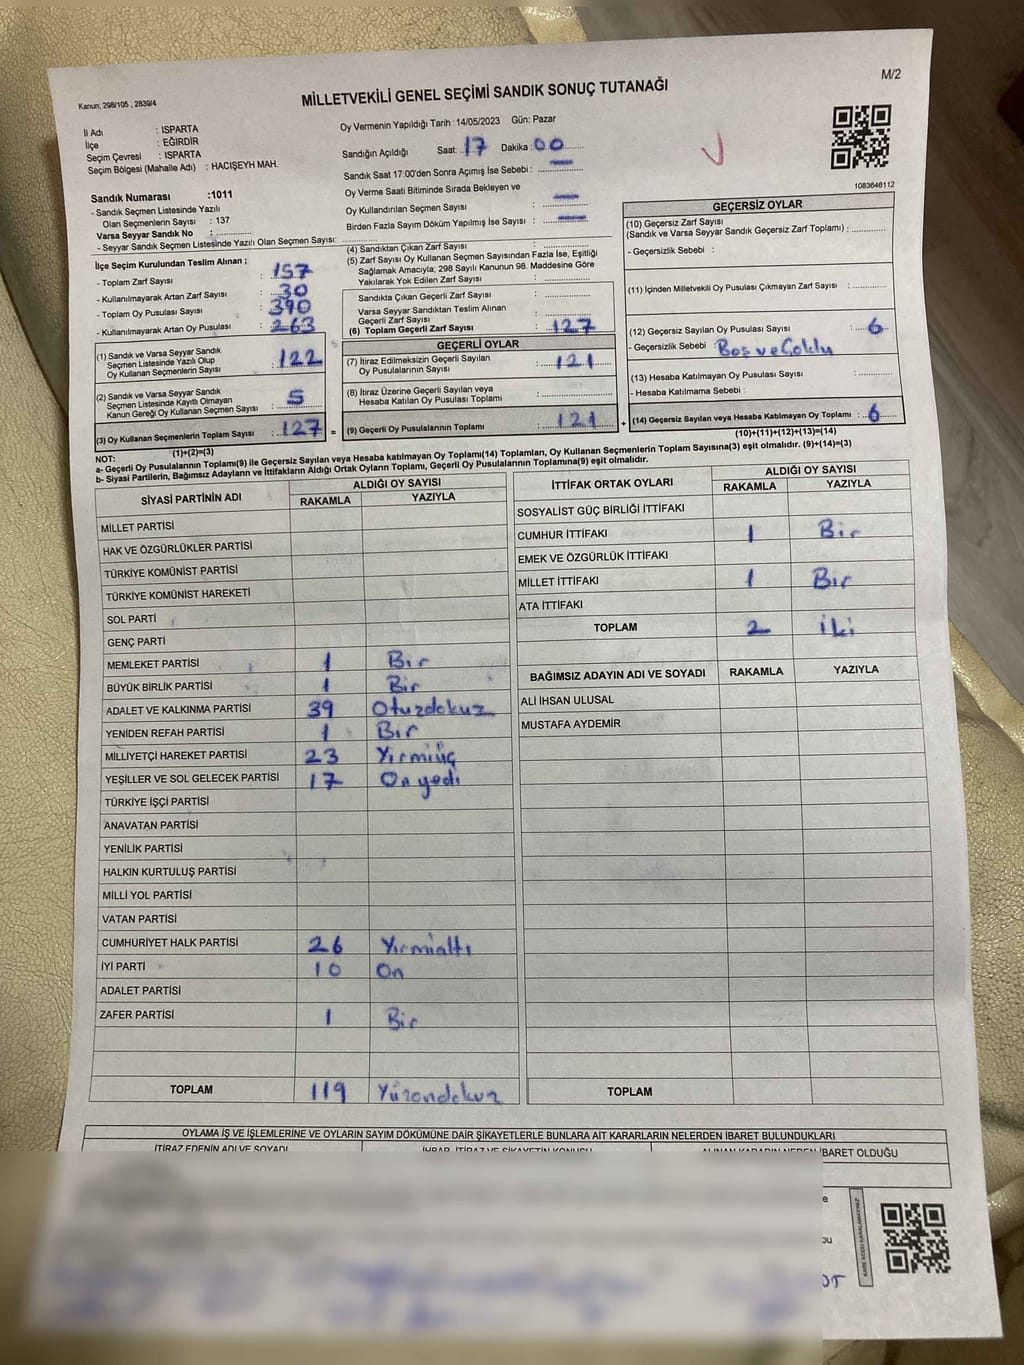 M/2
Kanun; 298/105 , 2839/4
MİLLETVEKİLİ GENEL SEÇİMİ SANDIK SONUÇ TUTANAĞI
İl Adı : ISPARTA
İlçe : EĞİRDİR
Seçim Çevresi : ISPARTA
Seçim Bölgesi (Mahalle Adı) : HACIŞEYH MAH.
Sandık Numarası :1011
- Sandık Seçmen Listesinde Yazılı
Olan Seçmenlerin Sayısı : 137
Varsa Seyyar Sandık No :
- Seyyar Sandık Seçmen Listesinde Yazılı Olan Seçmen Sayısı:
Oy Vermenin Yapıldığı Tarih :14/05/2023 Gün: Pazar
Sandığın Açıldığı Saat: 17 Dakika: 00
Sandık Saat 17:00'den Sonra Açımış İse Sebebi : —
Oy Verme Saati Bitiminde Sırada Bekleyen ve
Oy Kullandırılan Seçmen Sayısı : —
Birden Fazla Sayım Döküm Yapılmış İse Sayısı : —
1083646112
İlçe Seçim Kurulundan Teslim Alınan ;
- Toplam Zarf Sayısı : 157
- Kullanılmayarak Artan Zarf Sayısı : 30
- Toplam Oy Pusulası Sayısı : 390
- Kullanılmayarak Artan Oy Pusulası : 263
(1) Sandık ve Varsa Seyyar Sandık
Seçmen Listesinde Yazılı Olup
Oy Kullanan Seçmenlerin Sayısı : 122
(2) Sandık ve Varsa Seyyar Sandık
Seçmen Listesinde Kayıtlı Olmayan
Kanun Gereği Oy Kullanan Seçmen Sayısı : 5
(3) Oy Kullanan Seçmenlerin Toplam Sayısı : 127
(1)+(2)=(3)
(4) Sandıktan Çıkan Zarf Sayısı :
(5) Zarf Sayısı Oy Kullanan Seçmen Sayısından Fazla İse, Eşitliği
Sağlamak Amacıyla; 298 Sayılı Kanunun 98. Maddesine Göre
Yakılarak Yok Edilen Zarf Sayısı :
Sandıkta Çıkan Geçerli Zarf Sayısı :
Varsa Seyyar Sandıktan Teslim Alınan
Geçerli Zarf Sayısı :
(6) Toplam Geçerli Zarf Sayısı : 127
GEÇERLİ OYLAR
(7) İtiraz Edilmeksizin Geçerli Sayılan
Oy Pusulalarının Sayısı : 121
(8) İtiraz Üzerine Geçerli Sayılan veya
Hesaba Katılan Oy Pusulası Toplamı :
= (9) Geçerli Oy Pusulalarının Toplamı : 121 +
GEÇERSİZ OYLAR
(10) Geçersiz Zarf Sayısı
(Sandık ve Varsa Seyyar Sandık Geçersiz Zarf Toplamı) :
- Geçersizlik Sebebi :
(11) İçinden Milletvekili Oy Pusulası Çıkmayan Zarf Sayısı :
(12) Geçersiz Sayılan Oy Pusulası Sayısı : 6
- Geçersizlik Sebebi : Boş ve Çoklu
(13) Hesaba Katılmayan Oy Pusulası Sayısı :
- Hesaba Katılmama Sebebi :
(14) Geçersiz Sayılan veya Hesaba Katılmayan Oy Toplamı : 6
(10)+(11)+(12)+(13)=(14)
NOT:
a- Geçerli Oy Pusulalarının Toplamı(9) ile Geçersiz Sayılan veya Hesaba katılmayan Oy Toplam(14) Toplamları, Oy Kullanan Seçmenlerin Toplam Sayısına(3) eşit olmalıdır. (9)+(14)=(3)
b- Siyasi Partilerin, Bağımsız Adayların ve İttifakların Aldığı Ortak Oyların Toplamı, Geçerli Oy Pusulalarının Toplamına(9) eşit olmalıdır.
SİYASİ PARTİNİN ADI ALDIĞI OY SAYISI
RAKAMLA YAZIYLA
MİLLET PARTİSİ
HAK VE ÖZGÜRLÜKLER PARTİSİ
TÜRKİYE KOMÜNİST PARTİSİ
TÜRKİYE KOMÜNİST HAREKETİ
SOL PARTİ
GENÇ PARTİ
MEMLEKET PARTİSİ 1 Bir
BÜYÜK BİRLİK PARTİSİ 1 Bir
ADALET VE KALKINMA PARTİSİ 39 Otuzdokuz
YENİDEN REFAH PARTİSİ 1 Bir
MİLLİYETÇİ HAREKET PARTİSİ 23 Yirmiüç
YEŞİLLER VE SOL GELECEK PARTİSİ 17 On yedi
TÜRKİYE İŞÇİ PARTİSİ
ANAVATAN PARTİSİ
YENİLİK PARTİSİ
HALKIN KURTULUŞ PARTİSİ
MİLLİ YOL PARTİSİ
VATAN PARTİSİ
CUMHURİYET HALK PARTİSİ 26 Yirmialtı
İYİ PARTİ 10 On
ADALET PARTİSİ
ZAFER PARTİSİ 1 Bir
TOPLAM 119 Yüzondokuz
İTTİFAK ORTAK OYLARI ALDIĞI OY SAYISI
RAKAMLA YAZIYLA
SOSYALİST GÜÇ BİRLİĞİ İTTİFAKI
CUMHUR İTTİFAKI 1 Bir
EMEK VE ÖZGÜRLÜK İTTİFAKI
MİLLET İTTİFAKI 1 Bir
ATA İTTİFAKI
TOPLAM 2 İki
BAĞIMSIZ ADAYIN ADI VE SOYADI RAKAMLA YAZIYLA
ALİ İHSAN ULUSAL
MUSTAFA AYDEMİR
TOPLAM
OYLAMA İŞ VE İŞLEMLERİNE VE OYLARIN SAYIM DÖKÜMÜNE DAİR ŞİKAYETLERLE BUNLARA AİT KARARLARIN NELERDEN İBARET BULUNDUKLARI
İTİRAZ EDENİN ADI VE SOYADI İHBAR, İTİRAZ VE ŞİKAYETİN KONUSU ALINAN KARARIN NEDEN İBARET OLDUĞU